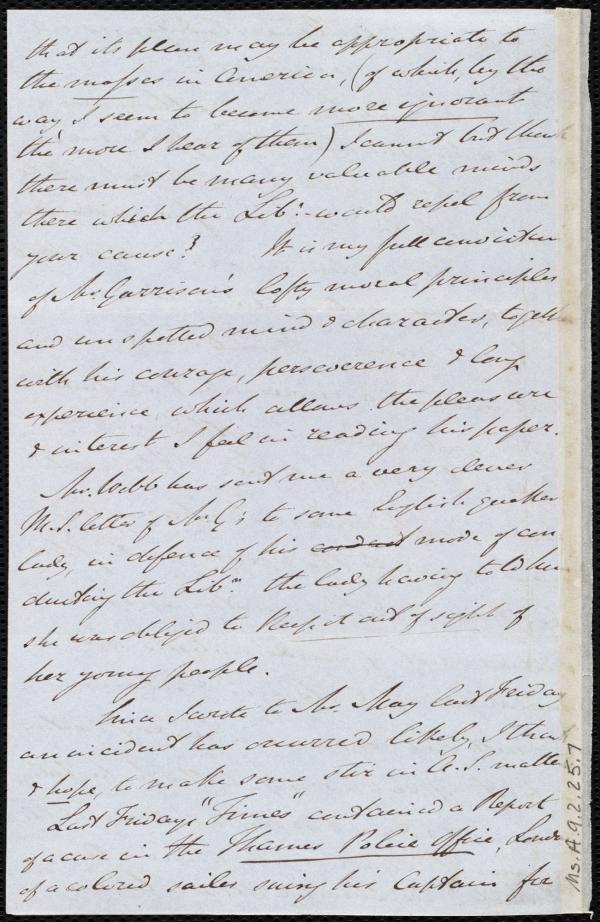 that its plan may be appropriate to
the masses in America, (of which, by the
way I seem to become more ignorant
the more I hear of them) I cannot but think
there must be many valuable minds
there which the Libr. would repel from
your cause? It is my full conviction
of Mr Garrison's lofty moral principles
and unspotted mind & character, together
with his courage, perseverence & long
experience, which allows the pleasure
& interest I feel in reading his paper.
Mr. Webb has sent me a very clever
M.S. letter of Mr G's to some English quaker
lady, in defence of his conduct mode of con
ducting the Libr. the lady having told him
she was obliged to keep it out of sight of
her young people.
Since I wrote to Mr. May last Friday
an incident has occurred likely, I think
& hope, to make some stir in A.S. matters
Last Friday's "Times" contained a Report
of a case in the Thames Police Office, London
of a colored sailor suing his Captain for
Ms.A.9.2.25.7